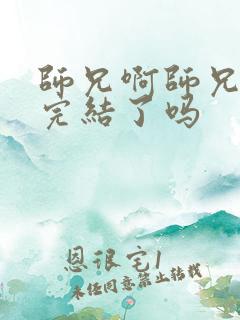 師兄啊師兄
完結了吗
恩很宅1
未经同意禁止转载